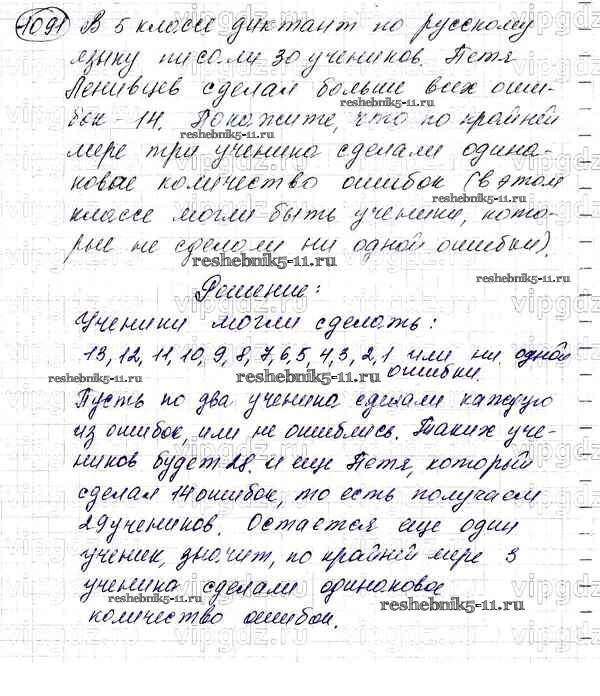 1091 В 5 классе диктант по русскому
языку писали 30 учеников. Петя
Ленивцев сделал больше всех оши-
бок - 14. Докажите, что по крайней
reshebnik5-11.ru
мере три ученика сделали одина-
ковое количество ошибок (в этом
reshebnik5-11.ru
классе могли быть ученики, кото-
рые не сделали ни одной ошибки).
reshebnik5-11.ru
reshebnik5-11.ru
Решение:
Ученики могли сделать:
13, 12, 11, 10, 9, 8, 7, 6, 5, 4, 3, 2, 1 или ни одной
ошибки.
reshebnik5-11.ru
reshebnik5-11.ru
Пусть по два ученика сделали каждую
из ошибок, или не ошиблись. Таких уче-
ников будет 28 и еще Петя, который
сделал 14 ошибок, то есть получаем
29 учеников. Остается еще один
ученик, значит, по крайней мере 3
ученика сделали одинаковое
reshebnik5-11.ru
количество ошибок.